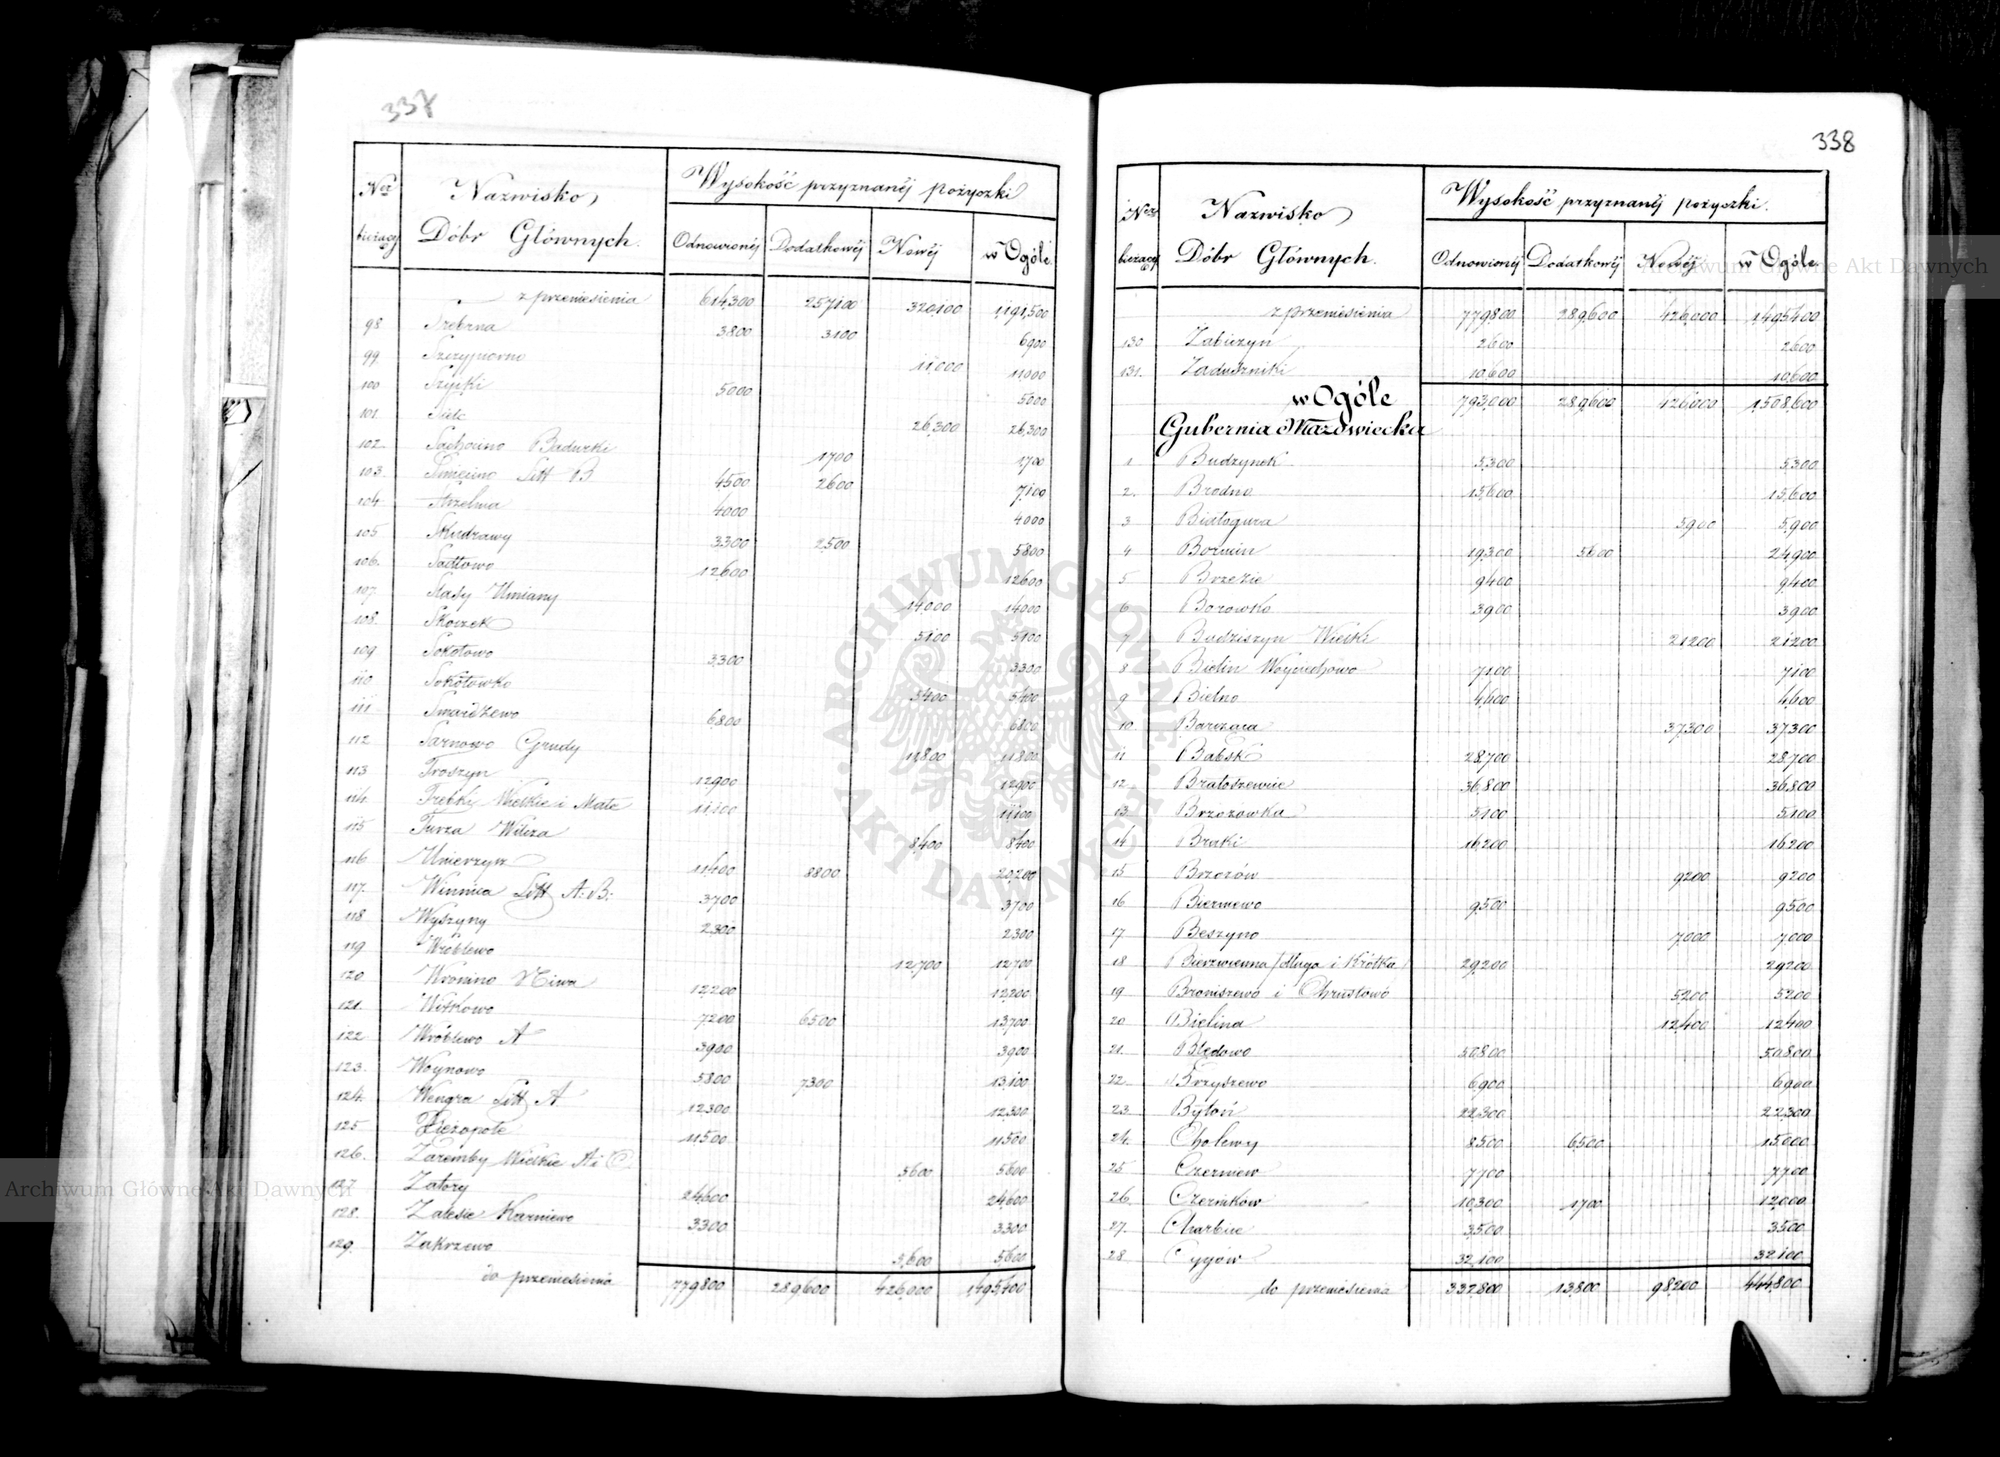 337
Nr bieżący | Nazwisko Dóbr Głównych. | Wysokość przyznanéj pożyczki
Odnowionéj | Dodatkowéj | Nowéj | w Ogóle
z przeniesienia 614,300 257,100 320,100 1,191,500
98 Srebrna 3800 3100 6900
99 Szczypiorno 11,000 11000
100 Szycki 5000 5000
101. 26,300 26,300
102. Sachocino Badurki 1700 1700
103. Litt B 4500 2600 7,100
104 Strzelnia 4000 4000
105 3300 2,500 5800
106. Sadłowo 12600 12600
107. Stary Uniany 14000 14000
108. Skoczek 5100 5100
109 Sokołowo 3,300 3300
110 Sokołowko 5400 5400
111 Smardzewo 6,800 6800
112 Tarnowo Grudy 11,800 11800
113 Troszyn 12900 12900
114. Trebki Wielkie i Małe 11,100 11100
115 Turza Wilcza 8,400 8400
116 Unierzyn 11,400 8800 20,200
117. Winnica Litt A: B: 3700 3700
118 Wyszyny 2300 2300
119 Wróblewo 12,700 12,700
120. Wronino Niwa 12,200 12,200
121. Witkowo 7200 6500 13,700
122. Wróblewo A 3900 3900
123. Woynowo 5800 7300 13,100
124. Wengra Litt A 12300 12,300
125 11500 11500
126. Zaremby Wielkie A i C. 5600 5600
127 Zatory 24600 24,600
128. Zalesie Karniewo 3300 3300
129. Zakrzewo 5,600 5600
do przeniesienia 779800 289,600 426,000 1,495,400
338
Nr bieżący | Nazwisko Dóbr Głównych. | Wysokość przyznanéj pożyczki.
Odnowionéj | Dodatkowéj | Nowéj | w Ogóle
z przeniesienia 779800 289,600 426,000 1,495400
130 Zabiczyn 2600 2600
131. Zaduszniki 10,600 10,600
w Ogóle 793,000 289,600 426,000 1,508,600
Gubernia Mazowiecka
1 Budzynek 5,300 5300
2. Brodno 15,600 15,600
3 Białogura 5900 5,900
4 Bormin 19,300 5600 24,900
5 Brzezie 9400 9,400
6 Borowko 3900 3900
7 Budziszyn Wielki 21200 21200
8 Bielin Woyciechowo 7100 7100
9 Bielno 4,600 4,600
10 Barczaca 37,300 37,300
11 Babsk 28,700 28,700
12. Bratoszewice 36,800 36,800
13. Brzozowka 5,100 5,100
14 Braki 16,200 16200
15 Brzozów 9200 9200
16 Biernewo 9,500 9500
17 Beszyno 7000 7000
18 Bierzwienna Długa i Krótka 29,200 29200
19 Broniszewo i Chrustowo 5,200 5200
20 Bielina 12,400 12,400
21. Błędowo 50,800 50,800
22 Brzyszewo 6900 6900
23 Bytoń 22,300 22,300
24. Cholewy 8500 6,500 15,000
25 Czerniew 7700 7700
26 Czerników 10,300 1700 12,000
27. Charbice 3,500 3500
28 Cygów 32,100 32,100
do przeniesienia 332,800 13,800 98,200 444,800
Archiwum Główne Akt Dawnych
Archiwum Główne Akt Dawnych
ARCHIWUM GŁÓWNE · AKT DAWNYCH ·